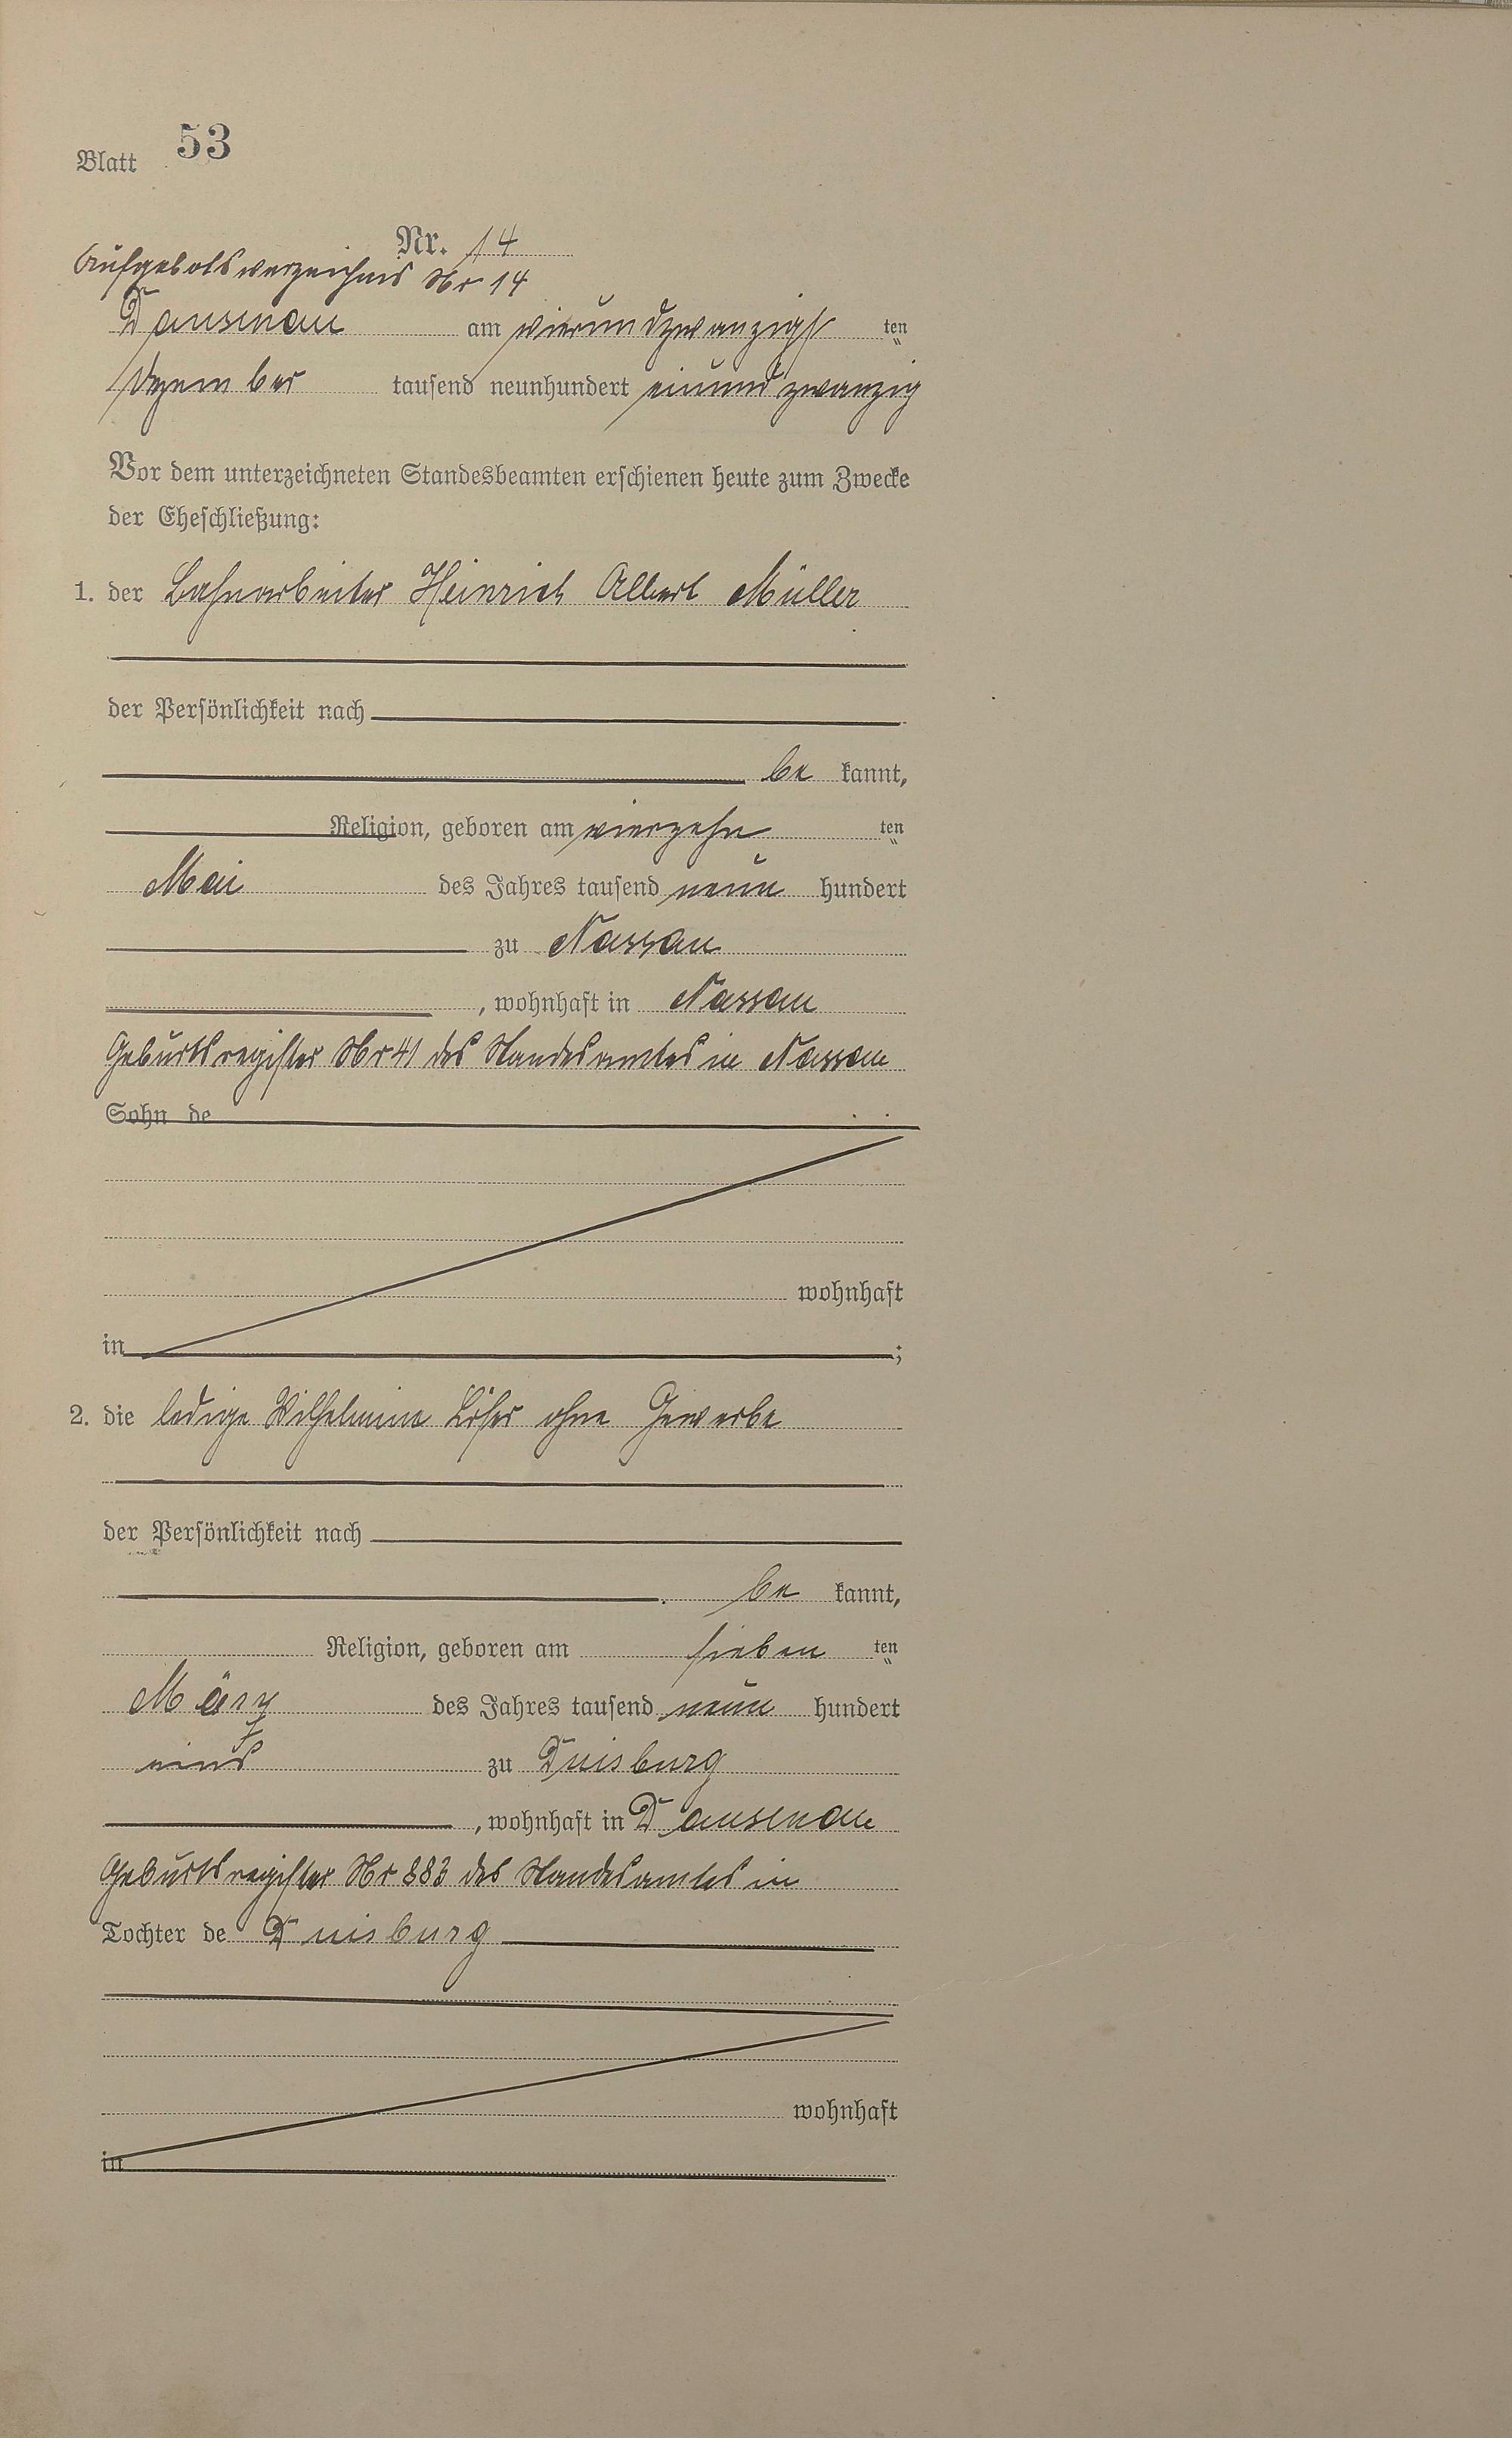 Blatt 53
Nr. 14
Aufgebotsverzeichnis Nr 14
Dausenau am vierundzwanzigst ten
Dezember tausend neunhundert einundzwanzig
Vor dem unterzeichneten Standesbeamten erschienen heute zum Zwecke
der Eheschließung:
1. der Bahnarbeiter Heinrich Albert Müller
der Persönlichkeit nach
be kannt,
Religion, geboren am vierzehn ten
Mai des Jahres tausend neun hundert
zu Nassau
, wohnhaft in Nassau
Geburtsregister Nr 41 des Standesamtes in Nassau
Sohn de
wohnhaft
in ;
2. die ledige Wilhelmine ohne Gewerbe
der Persönlichkeit nach
be kannt,
Religion, geboren am sieben ten
März des Jahres tausend neun hundert
eins zu Duisburg
, wohnhaft in Dausenau
Geburtsregister Nr 883 des Standesamtes in
Tochter de Duisburg
wohnhaft
in